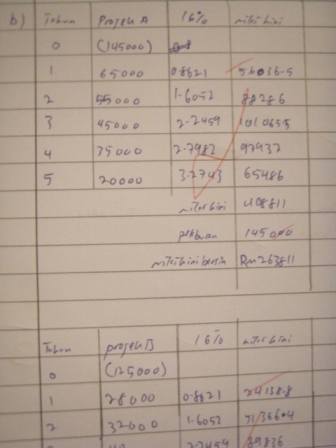 b) Tahun Projek A 16% nilai kini
0 (145000)
1 65000 0.8621 56036.5
2 55000 1.6052 88286
3 45000 2.2459 101065.5
4 35000 2.7982 97937
5 20000 3.2743 65486
nilai kini 408811
pelaburan 145000
nilai kini bersih RM 263811
Tahun projek B 16% nilai kini
0 (125000)
1 28000 0.8621 24138.8
2 32000 1.6052 51366.4
2.2459 89836